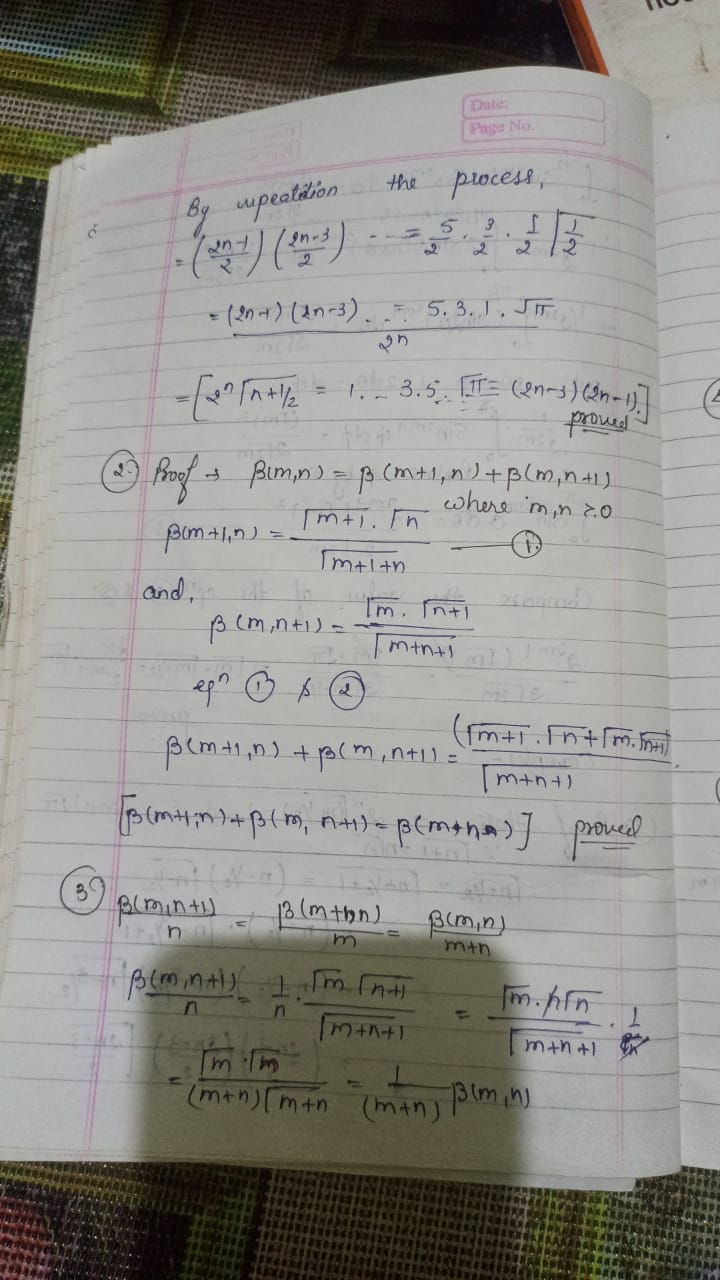 Date:
Page No.
By repeatition the process,
= (2n-1/2) (2n-3/2) - - = 5/2 . 3/2 . 1/2 Γ1/2
= (2n-1) (2n-3) . . = 5. 3. 1. √π / 2n
= [2ⁿ Γn+1/2 = 1. - 3.5. √π = (2n-3) (2n-1).]
proved
2. Proof → β(m,n) = β(m+1,n) + β(m,n+1)
where m,n >0
β(m+1,n) = Γm+1 . Γn / Γm+1+n — 1.
and,
β(m,n+1) = Γm . Γn+1 / Γm+n+1
eqⁿ 1 & 2
β(m+1,n) + β(m,n+1) = (Γm+1 . Γn + Γm . Γn+1 / Γm+n+1)
[β(m+1,n) + β(m, n+1) = β(m+n)] proved
3 β(m,n+1)/n = β(m+1,n)/m = β(m,n)/m+n
β(m,n+1)/n = 1/n . Γm Γn+1 / Γm+n+1 = Γm . nΓn / Γm+n+1 . 1/n
= Γm . Γm / (m+n) Γm+n = 1/(m+n) β(m,n)